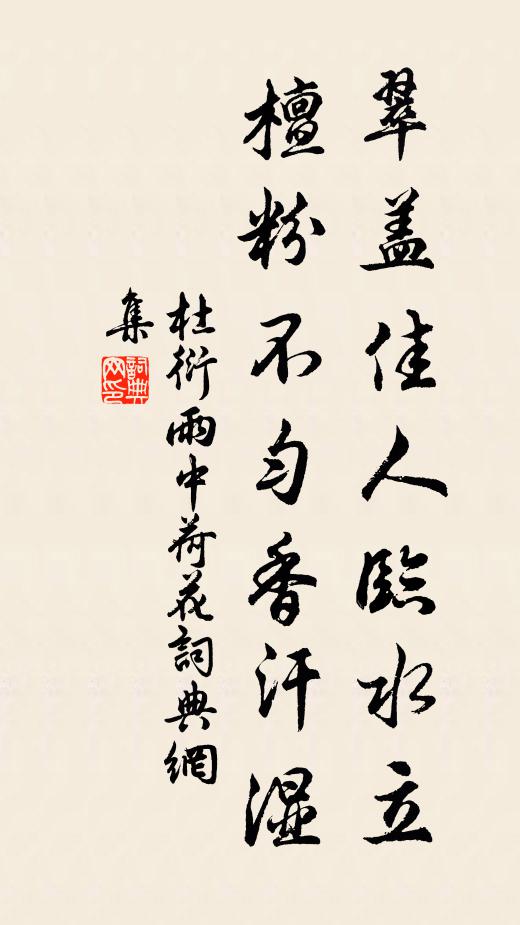 翠盖佳人臨水立
檀粉不匀香汗濕
杜衍雨中荷花詞典網
集
詞典網印